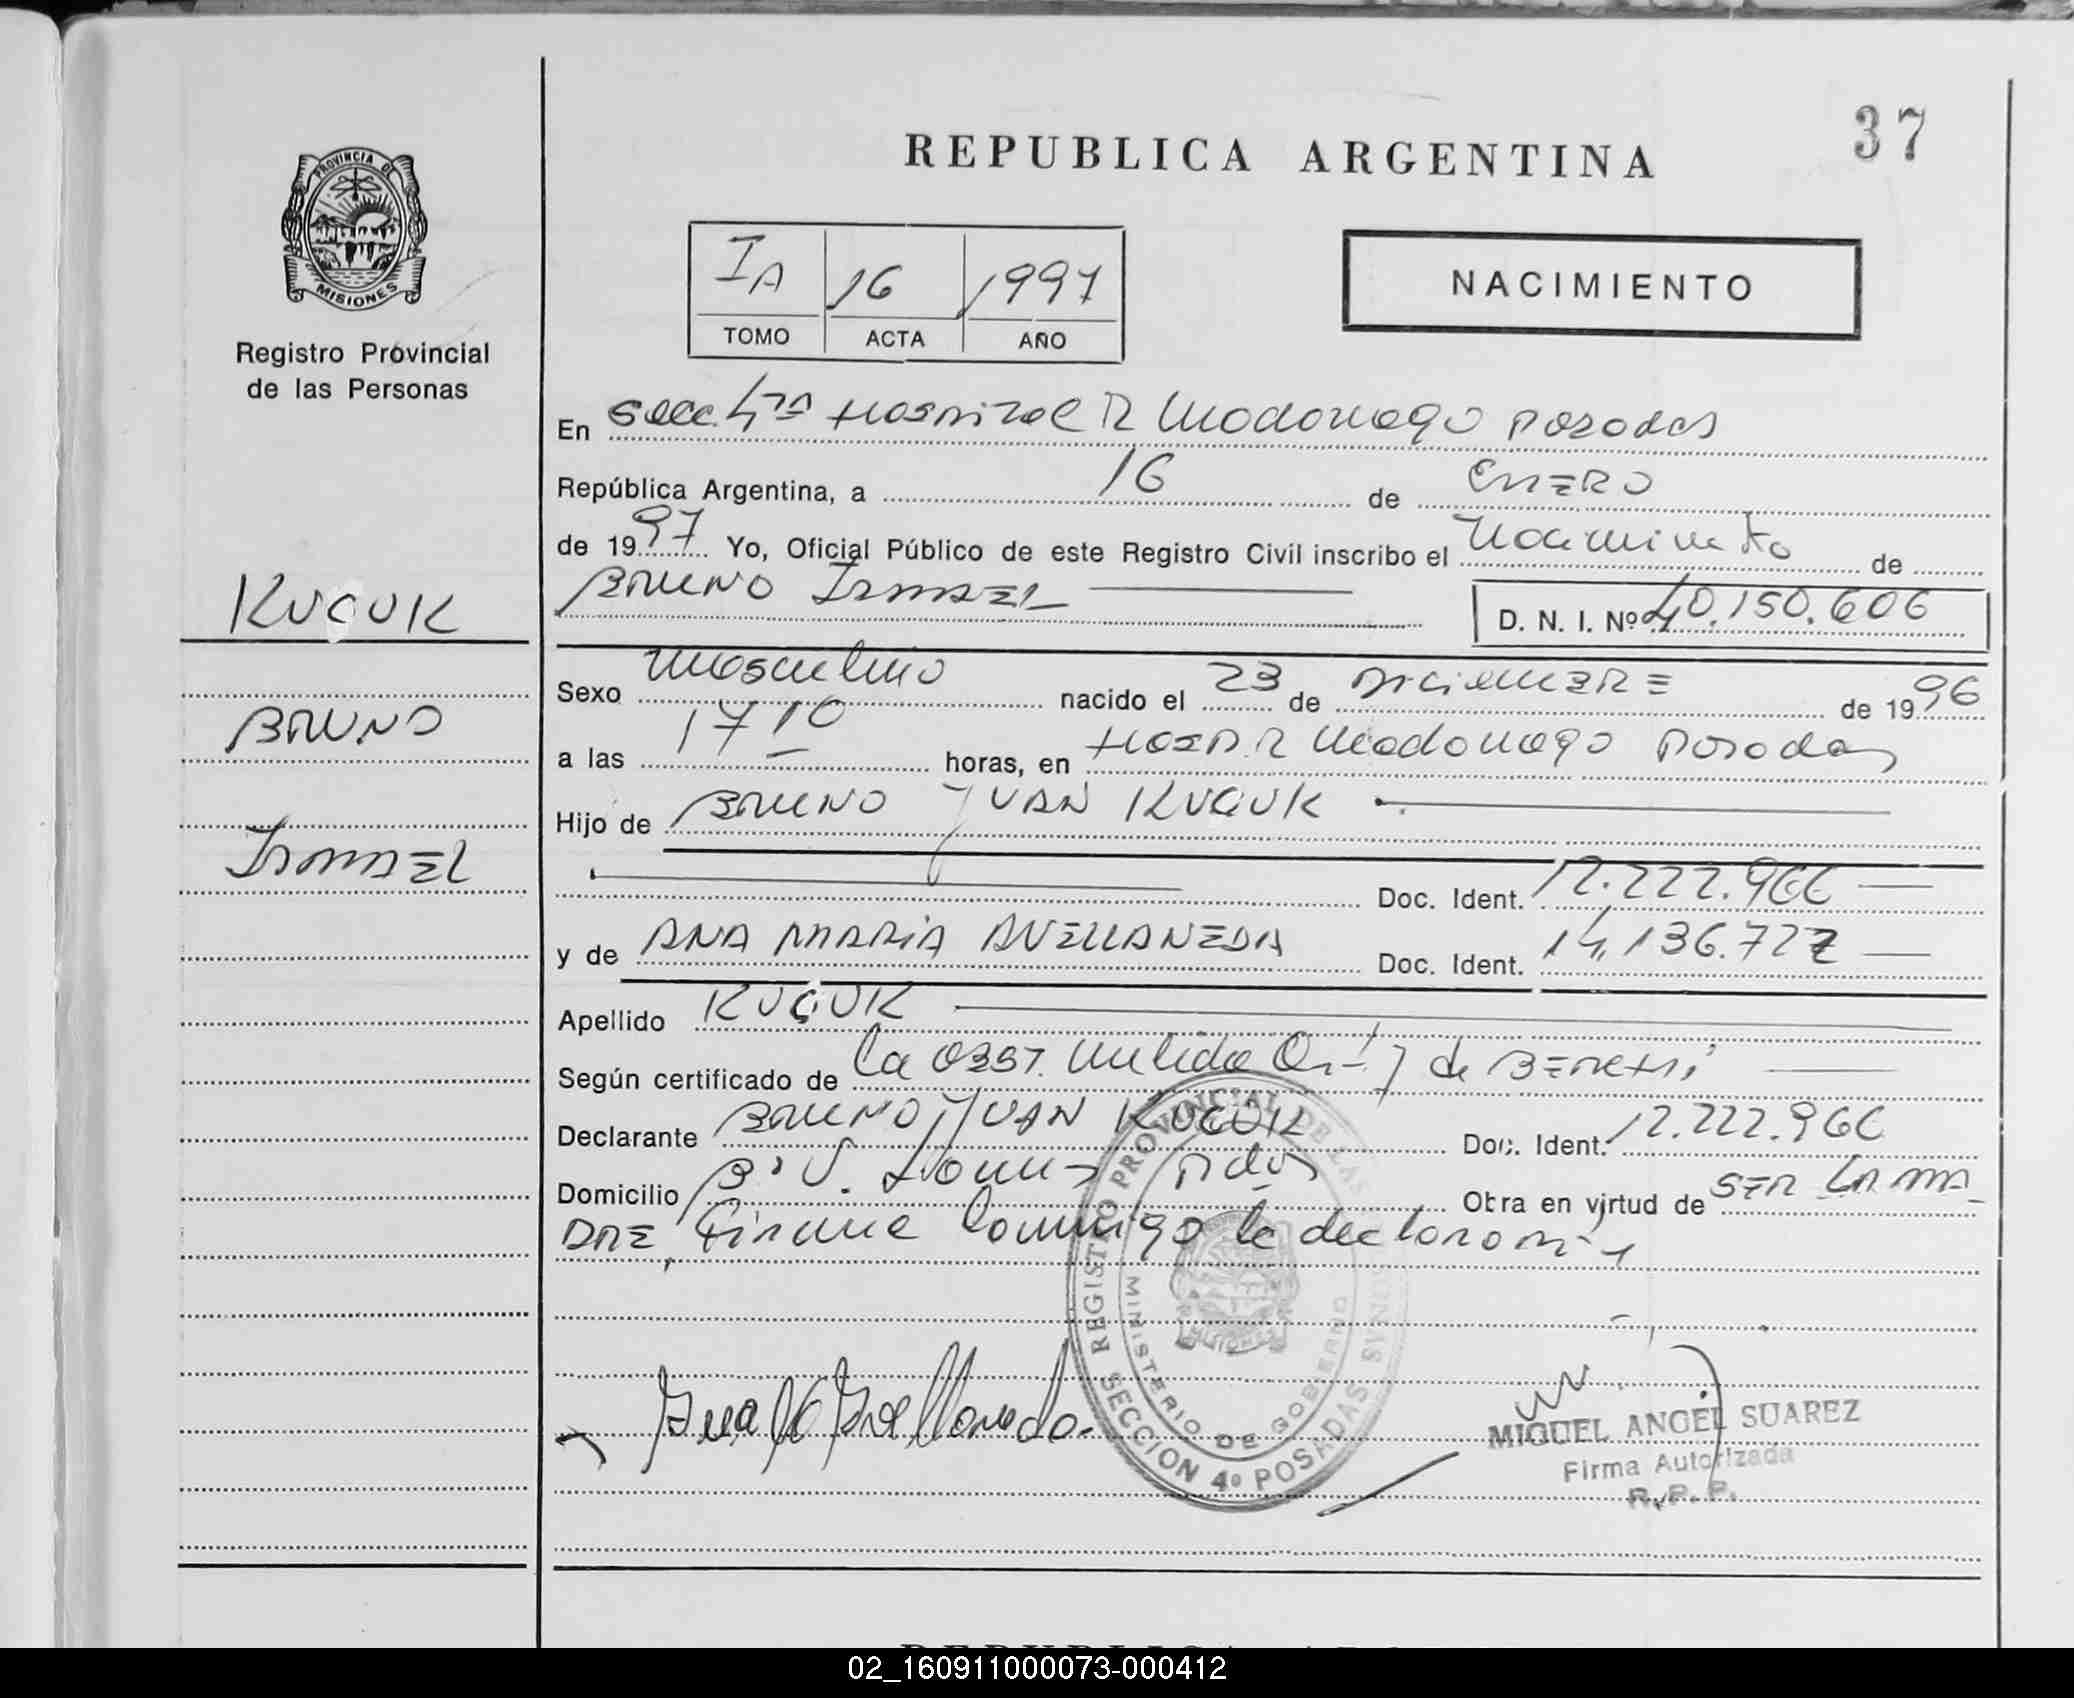 37
REPUBLICA ARGENTINA
PROVINCIA DE
MISIONES
Registro Provincial
de las Personas
IA 16 1997
TOMO ACTA AÑO
NACIMIENTO
En Secc. 4ta Hospital R Madariaga Posadas
República Argentina, a 16 de ENERO
de 1997 Yo, Oficial Público de este Registro Civil inscribo el Nacimiento de
BRUNO ISMAEL
D. N. I. Nº 40.150.606
KUCUK
BRUNO
ISMAEL
Sexo Masculino nacido el 23 de DICIEMBRE de 1996
a las 17 10 horas, en HOSP. R Madariaga Posadas
Hijo de BRUNO JUAN KUCUK
Doc. Ident. 12.222.966
y de ANA MARIA AVELLANEDA Doc. Ident. 14.136.727
Apellido KUCUK
Según certificado de la OBST. de
Declarante BRUNO JUAN KUCUK Doc. Ident. 12.222.966
Domicilio Bº Pdas Otra en virtud de SER LA MA
DRE, firma conmigo la declarante
REGISTRO PROVINCIAL DE LAS PERSONAS
MINISTERIO DE GOBIERNO
MISIONES
SECCION 4º POSADAS
Ana M Avellaneda
MIGUEL ANGEL SUAREZ
Firma Autorizada
R. P. P.
02_160911000073-000412